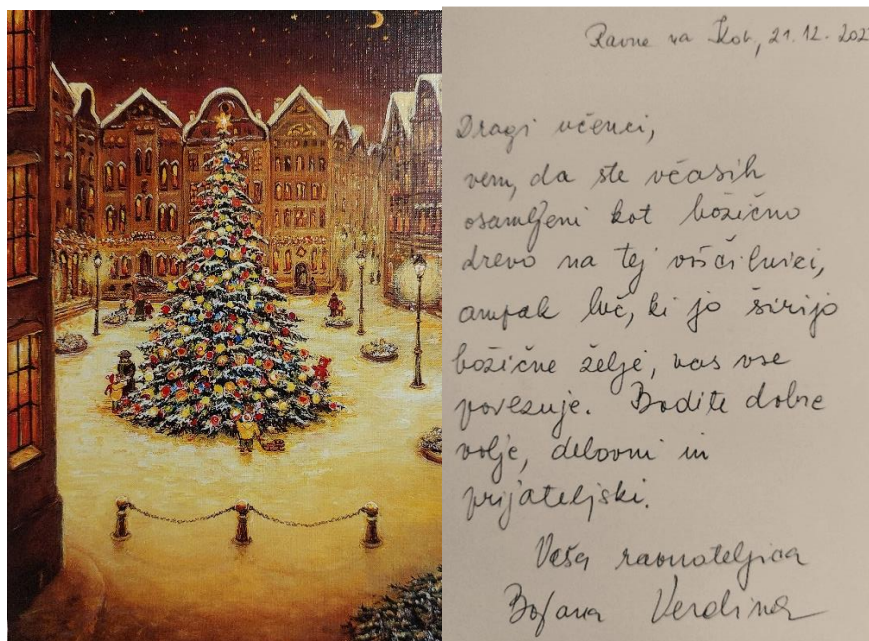 Ravne na Kor., 21. 12. 202
Dragi učenci,
vem, da ste včasih
osamljeni kot božično
drevo na tej voščilnici,
ampak luč, ki jo širijo
božične želje, vas vse
povezuje. Bodite dobre
volje, delovni in
prijateljski.
Vaša ravnateljica
Bojana Verdinek